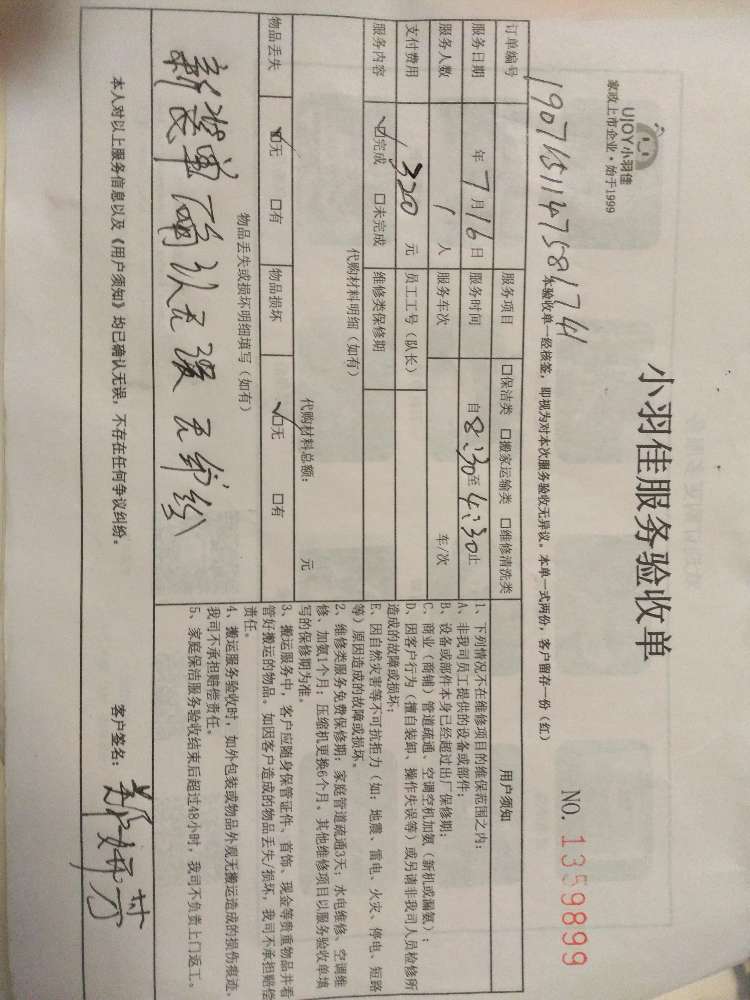 UJOY小羽佳
家政上市企业·始于1999
小羽佳服务验收单
NO. 1359899
190715114758174
本验收单一经核签，即视为对本次服务验收无异议。本单一式两份，客户留存一份（红）
订单编号 服务项目 □保洁类 □搬家运输类 □维修清洗类
服务日期 年7月16日 服务时间 自8:30至4:30止
服务人数 1人 服务车次 车/次
支付费用 320元 员工工号（队长）
服务内容 ☑完成 □未完成 维修类保修期
代购材料明细（如有）
代购材料总额： 元
物品丢失 ☑无 □有 物品损坏 ☑无 □有
物品丢失或损坏明细填写（如有）
确认无误无纠纷
用户须知
1、下列情况不在维修项目的维保范围之内：
A、非我司员工提供的设备或部件；
B、设备或部件本身已经超过出厂保修期；
C、商业（商铺）管道疏通、空调空机加氨（新机或漏氨）；
D、因客户行为（擅自装卸、操作失误等）或另请非我司人员检修所
造成的故障或损坏；
E、因自然灾害等不可抗拒力（如：地震、雷电、火灾、停电、短路
等）原因造成的故障或损坏。
2、维修类服务免费保修期：家庭管道疏通3天；水电维修、空调维
修、加氨1个月；压缩机更换6个月，其他维修项目以服务验收单填
写的保修期为准。
3、搬运服务中，客户应随身保管证件、首饰、现金等贵重物品并看
管好搬运的物品。如因客户造成的物品丢失/损坏，我司不承担赔偿
责任。
4、搬运服务验收时，如外包装或物品外观无搬运造成的损伤痕迹，
我司不承担赔偿责任。
5、家庭保洁服务验收结束后超过48小时，我司不负责上门返工。
本人对以上服务信息以及《用户须知》均已确认无误，不存在任何争议纠纷。 客户签名：